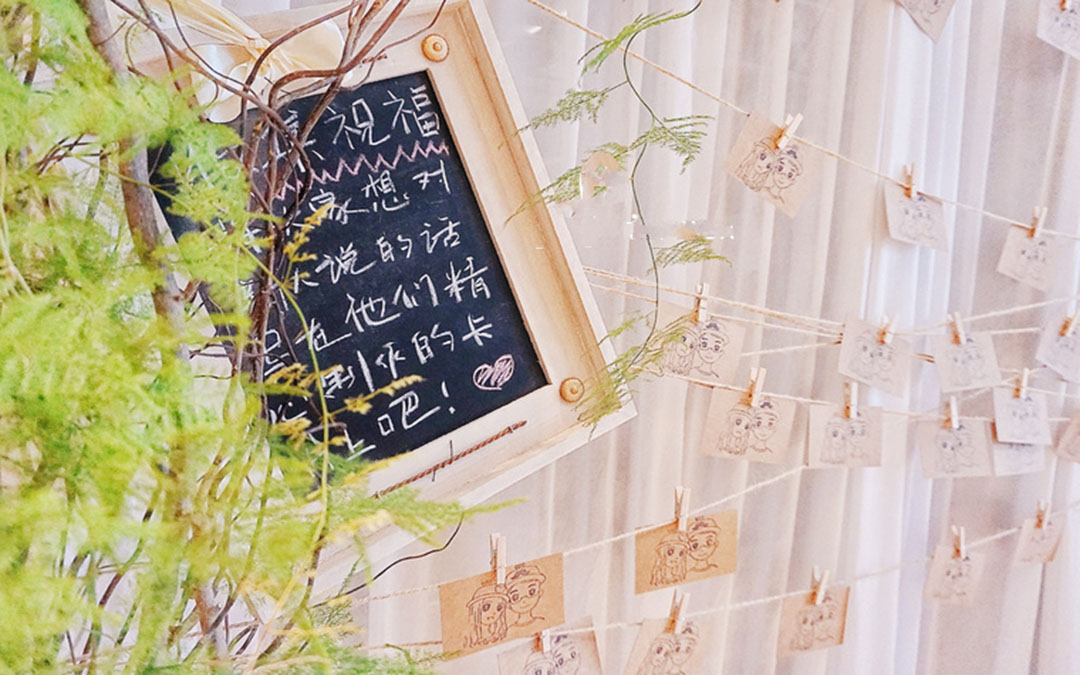 祝福
家想对
说的话
在他们精
制作的卡
上吧！